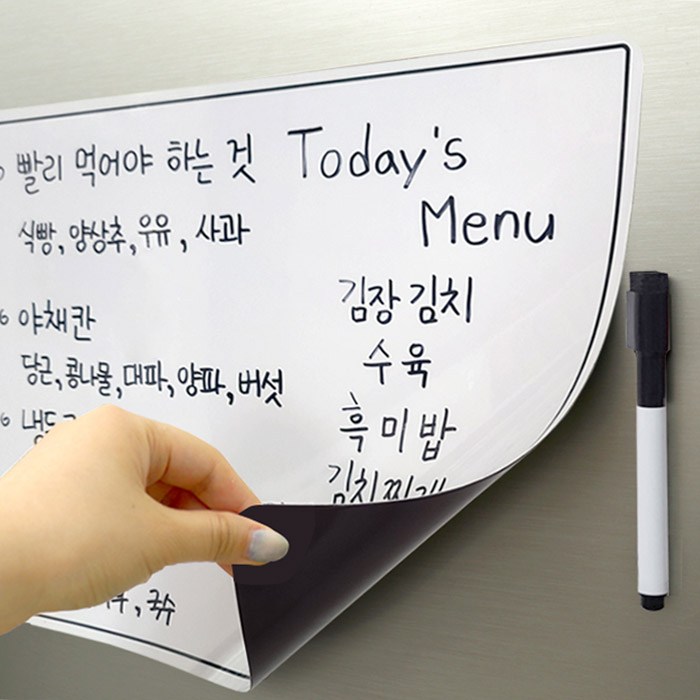 빨리 먹어야 하는 것
식빵, 양상추, 우유, 사과
야채칸
당근, 콩나물, 대파, 양파, 버섯
국수
Today's
Menu
김장 김치
수육
흑미밥
김치찌개